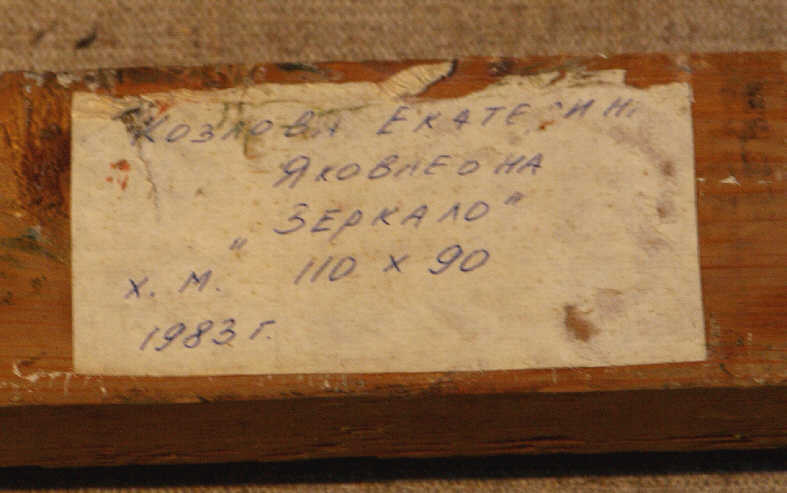 Козлова Екатерин
Яковлеона
"Зеркало"
х. м. 110 х 90
1983 г.